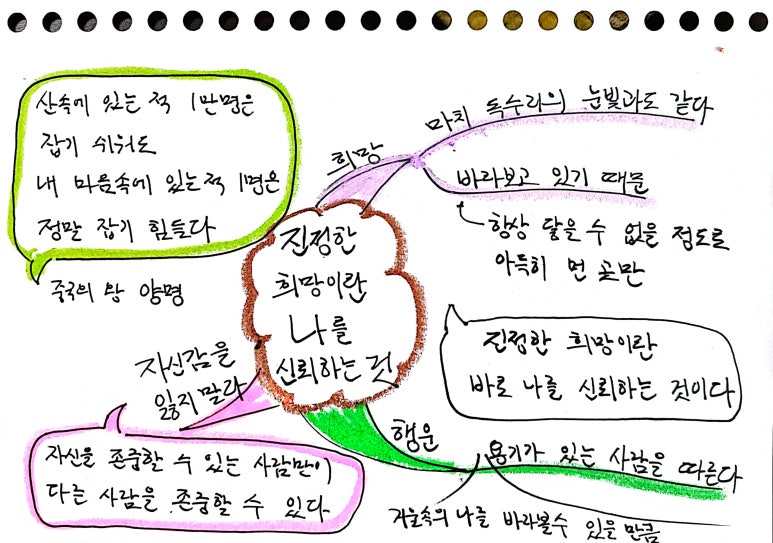 산속에 있는 적 1만명은
잡기 쉬워도
내 마음속에 있는 적 1명은
정말 잡기 힘들다
중국의 왕 양명
희망
마치 독수리의 눈빛과도 같다
바라보고 있기 때문
항상 닿을 수 없을 정도로
아득히 먼 곳만
진정한
희망이란
나를
신뢰하는 것
진정한 희망이란
바로 나를 신뢰하는 것이다
자신감을
잃지 말라
자신을 존중할 수 있는 사람만이
다른 사람을 존중할 수 있다
행운
용기가 있는 사람을 따른다
거울속의 나를 바라볼수 있을 만큼